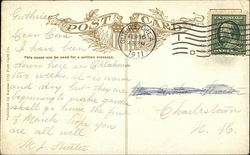 Guthrie
POST CARD
Dear Cora
I have been
This space can be used for a written message.
down here in Oklahoma
two weeks. it is warm
and dry. but they are
beginning to make garden
shall go home the first
of March hope you
are all well
1911
Charlestown
N. H.